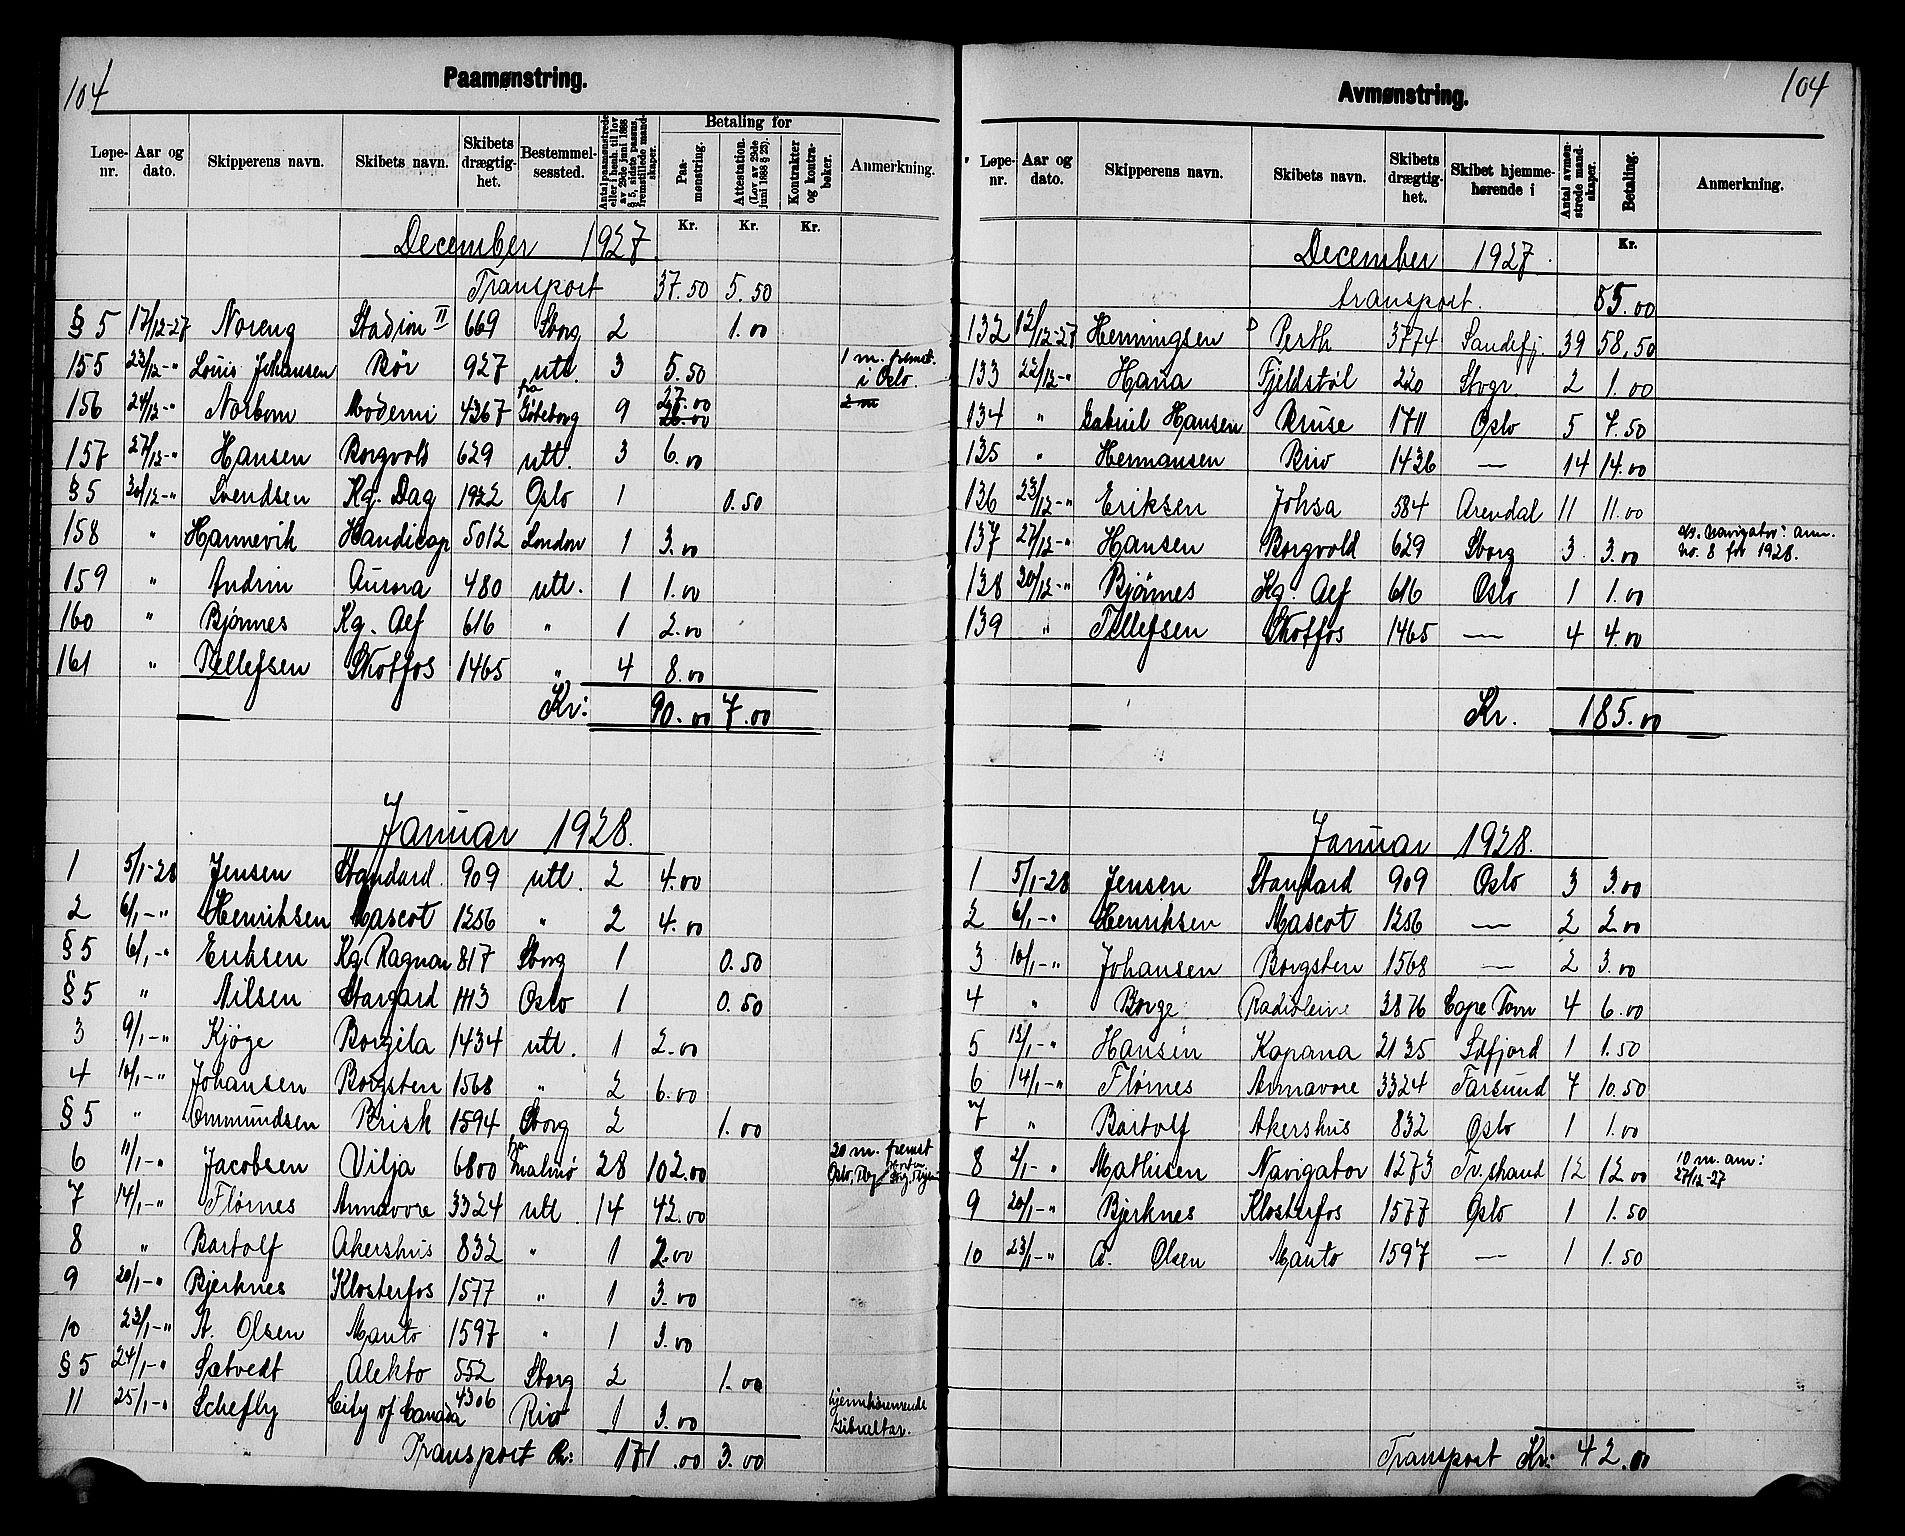 104
Paamønstring.
Løpe-nr. Aar og dato. Skipperens navn. Skibets navn. Skibets drægtig-het. Bestemmel-sessted. Antal paamønstrede eller i henh. til lov av 29de juni 1888 § 5, sidste passus, fremstillede mand-skaper. Betaling for Paa-mønstring. Attestation. (Lov av 29de juni 1888 § 25). Kontrakter og kontra-bøker. Anmerkning.
Kr. Kr. Kr.
December 1927.
Transport 37.50 5.50
§ 5 17/12-27 Noreng Stadion II 669 Sborg 2 1.00
155 23/12-" Louis Johansen Bør 927 utl. 3 5.50 1 m. fremst. i Oslo.
156 24/12-" Norbom Moderni 4267 fra Göteborg 9 27.00 26.00 2 m
157 27/12-" Hansen Borgvold 629 utl. 3 6.00
§ 5 30/12-" Svendsen Kg. Dag 1922 Oslo 1 0.50
158 " Hannevik Handicap 5012 London 1 3.00
159 " Andrin Aurora 480 utl. 1 1.00
160 " Bjønnes Kg. Alf 616 " 1 2.00
161 " Tellefsen Skotfos 1465 " 4 8.00
Kr: 90.00 7.00
Januar 1928.
1 5/1-28 Jensen Standard. 909 utl. 2 4.00
2 6/1-" Henriksen Mascot 1256 " 2 4.00
§ 5 6/1-" Eriksen Kg Ragnar 817 Sborg 1 0.50
§ 5 " Nilsen Stargard 1113 Oslo 1 0.50
3 9/1-" Kjøge Borgila 1434 utl. 1 2.00
4 10/1-" Johansen Borgsten 1568 " 2 6.00
§ 5 " Ommundsen Brisk 1594 Sborg 2 1.00
6 11/1-" Jacobsen Vilja 6800 fra Malmø 28 102.00 20 m. fremst Oslo,
7 14/1-" Flørnes Annavore 3324 utl. 14 42.00
8 " Bartolf Akershus 832 " 1 2.00
9 20/1-" Bjerknes Klosterfos 1577 " 1 3.00
10 23/1-" A. Olsen Manto 1597 " 1 3.00
§ 5 24/1-" Sætvedt Alekto 552 Sborg 2 1.00
11 25/1-" Schefly City of Canada 4306 Rio 1 3.00 hjemhørende Gibraltar.
Transport Kr: 171.00 3.00
104
Avmønstring.
Løpe-nr. Aar og dato. Skipperens navn. Skibets navn. Skibets drægtig-het. Skibet hjemme-hørende i Antal avmøn-strede mand-skaper. Betaling. Anmerkning.
Kr.
December 1927.
transport. 85.00
132 12/12-27 Henningsen Perth 3774 Sandefj. 39 58.50
133 22/12-" Hana Fjeldstøl 220 Stvgr. 2 1.00
134 " Gabriel Hansen Kruse 1711 Oslo 5 7.50
135 " Hermansen Brio 1426 — 14 14.00
136 23/12-" Eriksen Johsa 584 Arendal 11 11.00
137 27/12-" Hansen Borgvold 629 Sborg 3 3.00 d/s. Navigator: anm. no. 8 for 1928.
138 30/12-" Bjønnes Kg. Alf 616 Oslo 1 1.00
139 " Tellefsen Skotfos 1465 — 4 4.00
Kr. 185.00
Januar 1928.
1 5/1-28 Jensen Standard 909 Oslo 3 3.00
2 6/1-" Henriksen Mascot 1256 — 2 2.00
3 10/1-" Johansen Borgsten 1568 — 2 3.00
4 " Borge Radioleine 2876 Cape Town 4 6.00
5 12/1-" Hansen Kapana 2135 Sdfjord 1 1.50
6 14/1-" Flørnes Annavore 3324 Farsund 7 10.50
7 " Bartolf Akershus 832 Oslo 1 1.00
8 2/1-" Mathisen Navigator 1273 Tv.strand 12 12.00 10 m. anm: 27/12-27
9 20/1-" Bjerknes Klosterfos 1577 Oslo 1 1.50
10 23/1-" A. Olsen Manto 1597 — 1 1.50
Transport Kr: 42.00